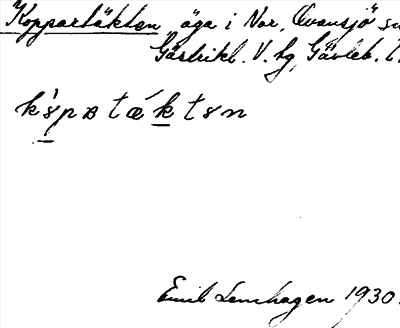 Koppartäkten äga i Nor, Ovansjö sn
Gästrikl. V. hg, Gävleb. l.
kȯpa tǽ k tsn
Emil Lenhagen 1930.